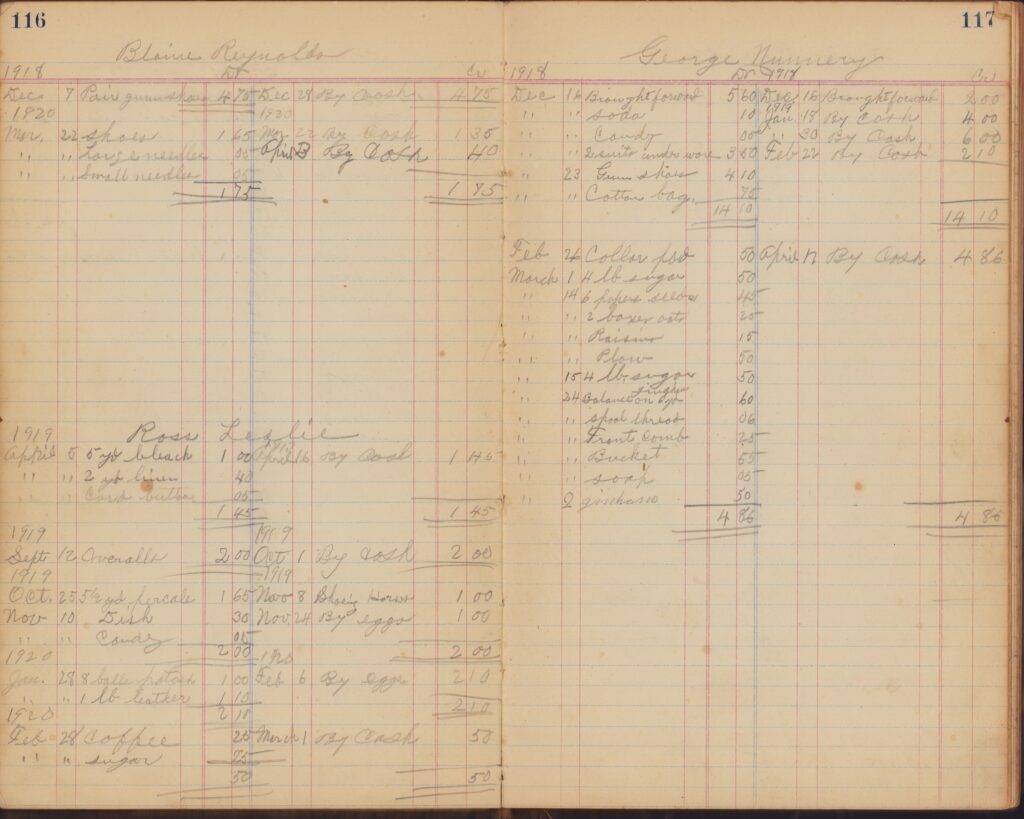 116
Blaine Reynolds
1918 Dr Cr
Dec 7 Pair gum shoes 4 75 Dec 28 By Cash 4 75
1920 1920
Mar. 22 shoes 1 65 Mar 22 By Cash 1 35
" " Large needles 05 April 3 By Cash 40
" " Small needles 05
1 75 1 75
1919 Ross Leslie
April 5 5 yd bleach 1 00 April 16 By Cash 1 45
" " 2 yd linen 40
" " Card button 05
1 45 1 45
1919 1919
Sept 12 Overalls 2 00 Oct 1 By Cash 2 00
1919 1919
Oct. 25 5½ yd percale 1 65 Nov 8 Shoeing Horses 1 00
Nov 10 Dish 30 Nov. 24 By eggs 1 00
" " Candy 05
2 00 2 00
1920 1920
Jan. 28 8 balls potash 1 00 Feb 6 By Eggs 2 10
" " 1 lb leather 1 10
2 10 2 10
1920
Feb 28 Coffee 25 March 1 By Cash 50
" " sugar 25
50 50
117
George Nunnery
1918 Dr 1918 Cr
Dec 16 Brought forward 5 60 Dec. 16 Brought forward 2 00
1919
" " soda 10 Jan. 18 By Cash 4 00
" " Candy 05 " 30 By Cash 6 00
" " 2 suits under ware 3 50 Feb 22 By Cash 2 10
" 23 Gum shoes 4 10
" " Cotton bag. 75
14 10 14 10
Feb 26 Collar pad 50 April 12 By Cash 4 86
March 1 4 lb sugar 50
" 14 6 papers seeds 45
" " 2 boxes oats 25
" " Raisins 15
" " Plow 50
" 15 4 lb. sugar 50
" 24 Balance on 6 yd gingham 60
" " spool thread 06
" " Front Comb 25
" " Bucket 55
" " soap 05
" gingham 50
4 86 4 86